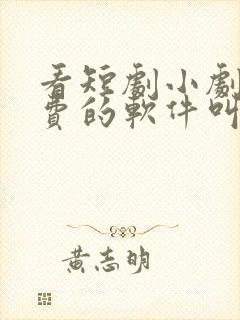 看短劇小劇
費的軟件叫
黃志明